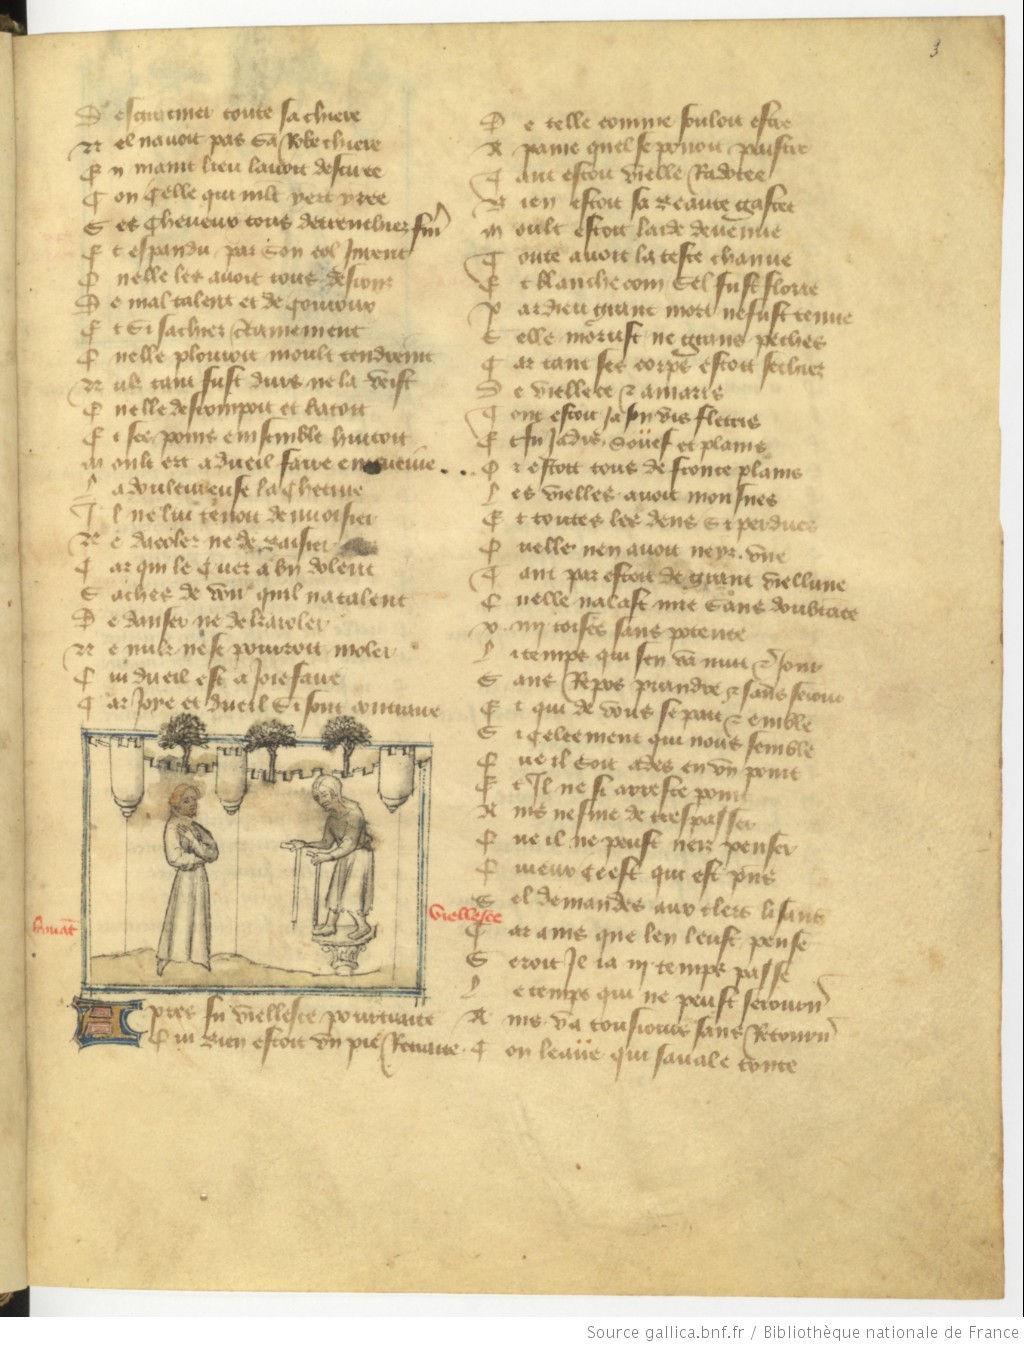 3
D esciremer toute sa chiere
N el navoit pas sa Robe chiere
E n maint lieu lavoit desciree
C on celle qui mlt yert yree
S es cheveux tous
E t espandu par son col
Q uelle les avoit tous
D e mal talent et de courroux
E t si sachiez certainement
Q uelle plouroit moult tendrement
N ulz tant fust durs ne la veist
Q uelle descompoit et batoit
E t ses poins ensemble hurtoit
M oult ert a dueil faire
L a douloureuse la chetive
I l ne lui tenoit denvoisier
N e dacoler ne de baisier
C ar qui le cuer a bn dolent
S aches de voir quil na talent
D e danser ne de karoler
N e nulz ne se pourroit moler
Q ui dueil est a Joie faire
C ar Joye et dueil si sont contraire
hamant
vieillesce
A pres fu vieillesce pourtraite
Q ui bien estoit un pie Retraite
D e telle comme souloit estre
A paine quel se povoit paistre
T ant estoit vieille Radotee
B ien estoit sa beaute gastee
M oult estoit laide devenue
T oute avoit la teste chanue
E t blanche com sel fust florie
P ar dieu grant mort ne fust
S elle morust ne grans pechies
C ar tant ses corps estoit sechiez
D e viellece et amatis
T ont estoit Ja son vis fletris
E t fu Jadis souef et plains
O r estoit tous de fronce plains
L es vielles avoit
E t toutes les dens si perdues
Q uelle nen avoit
T ant par estoit de grant viellune
Q uelle nalast mie sans doubtace
V iiii toises sans potente
L i temps qui sen va nuit et Jour
S ans Repos prandre et sans seiour
E t qui de vous se part et emble
S i celeement qui nous semble
Q ue il soit ades en un point
E t Il ne si arreste point
A ins ne fine de trespasser
Q ue il ne peust neiz penser
Q uieux cest qui est
S el demandes aux clers lisans
C ar ains que len leust pense
S eroit Je ia iii temps passe
L e temps qui ne peust secourner
A ins va tousiours sans Retourner
C on leaue qui savale toute
Source gallica.bnf.fr / Bibliothèque nationale de France